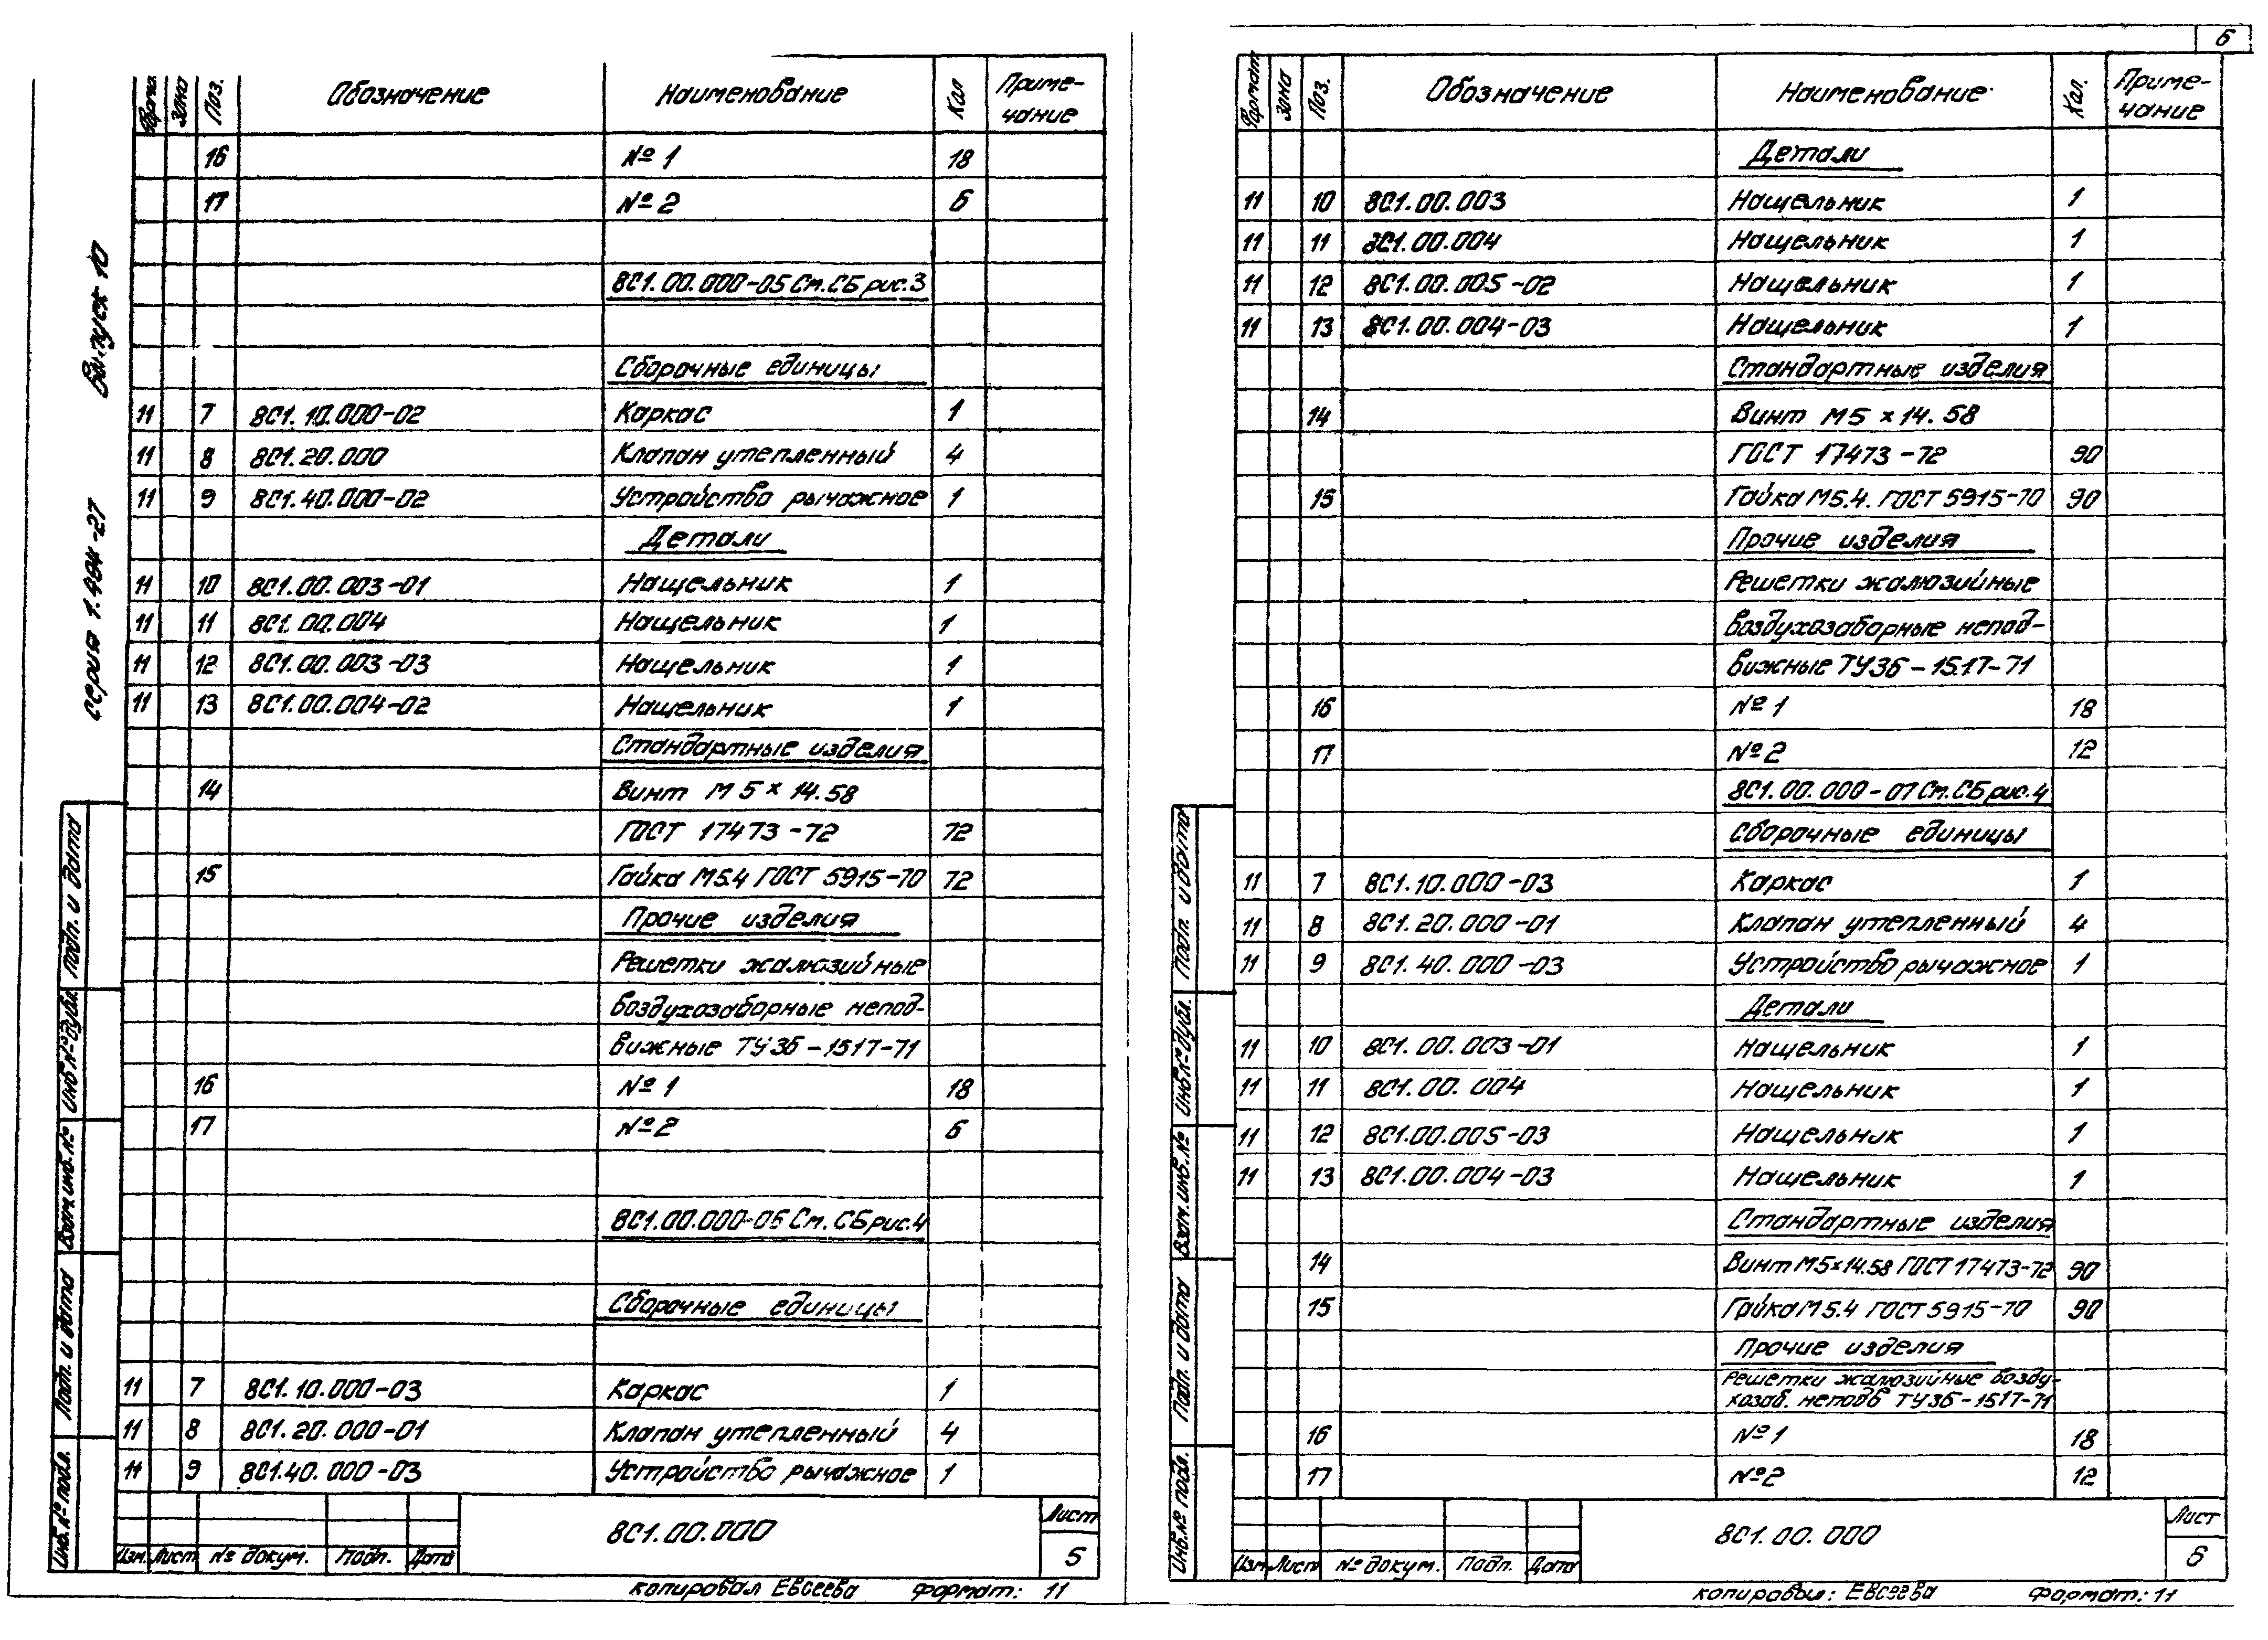 Выпуск 10
серия 1.494-27
Формат Зона Поз. Обозначение Наименование Кол Приме-
чание
16 №1 18
17 №2 6
8С1.00.000-05 См.СБ рис.3
Сборочные единицы
11 7 8С1.10.000-02 Каркас 1
11 8 8С1.20.000 Клапан утепленный 4
11 9 8С1.40.000-02 Устройство рычажное 1
Детали
11 10 8С1.00.003-01 Нащельник 1
11 11 8С1.00.004 Нащельник 1
11 12 8С1.00.003-03 Нащельник 1
11 13 8С1.00.004-02 Нащельник 1
Стандартные изделия
14 Винт М5×14.58
ГОСТ 17473-72 72
15 Гайка М5.4 ГОСТ 5915-70 72
Прочие изделия
Решетки жалюзийные
воздухозаборные непод-
вижные ТУ36-1517-71
16 №1 18
17 №2 6
8С1.00.000-06 См.СБ рис.4
Сборочные единицы
11 7 8С1.10.000-03 Каркас 1
11 8 8С1.20.000-01 Клапан утепленный 4
11 9 8С1.40.000-03 Устройство рычажное 1
Инв.№ подл. Подп. и дата Взам.инв.№ Инв.№ дубл. Подп. и дата
Изм. Лист № докум. Подп. Дата
8С1.00.000
Лист
5
копировал Евсеева Формат: 11
6
Формат Зона Поз. Обозначение Наименование Кол. Приме-
чание
Детали
11 10 8С1.00.003 Нащельник 1
11 11 8С1.00.004 Нащельник 1
11 12 8С1.00.005-02 Нащельник 1
11 13 8С1.00.004-03 Нащельник 1
Стандартные изделия
14 Винт М5×14.58
ГОСТ 17473-72 90
15 Гайка М5.4. ГОСТ 5915-70 90
Прочие изделия
Решетки жалюзийные
воздухозаборные непод-
вижные ТУ36-1517-71
16 №1 18
17 №2 12
8С1.00.000-07 См.СБ рис.4
Сборочные единицы
11 7 8С1.10.000-03 Каркас 1
11 8 8С1.20.000-01 Клапан утепленный 4
11 9 8С1.40.000-03 Устройство рычажное 1
Детали
11 10 8С1.00.003-01 Нащельник 1
11 11 8С1.00.004 Нащельник 1
11 12 8С1.00.005-03 Нащельник 1
11 13 8С1.00.004-03 Нащельник 1
Стандартные изделия
14 Винт М5×14.58 ГОСТ 17473-72 90
15 Гайка М5.4 ГОСТ 5915-70 90
Прочие изделия
Решетки жалюзийные возду-
хозаб. неподв ТУ36-1517-71
16 №1 18
17 №2 12
Инв.№ подл. Подп. и дата Взам.инв.№ Инв.№ дубл. Подп. и дата
Изм Лист № докум. Подп. Дата
8С1.00.000
Лист
6
копировал: Евсеева Формат: 11